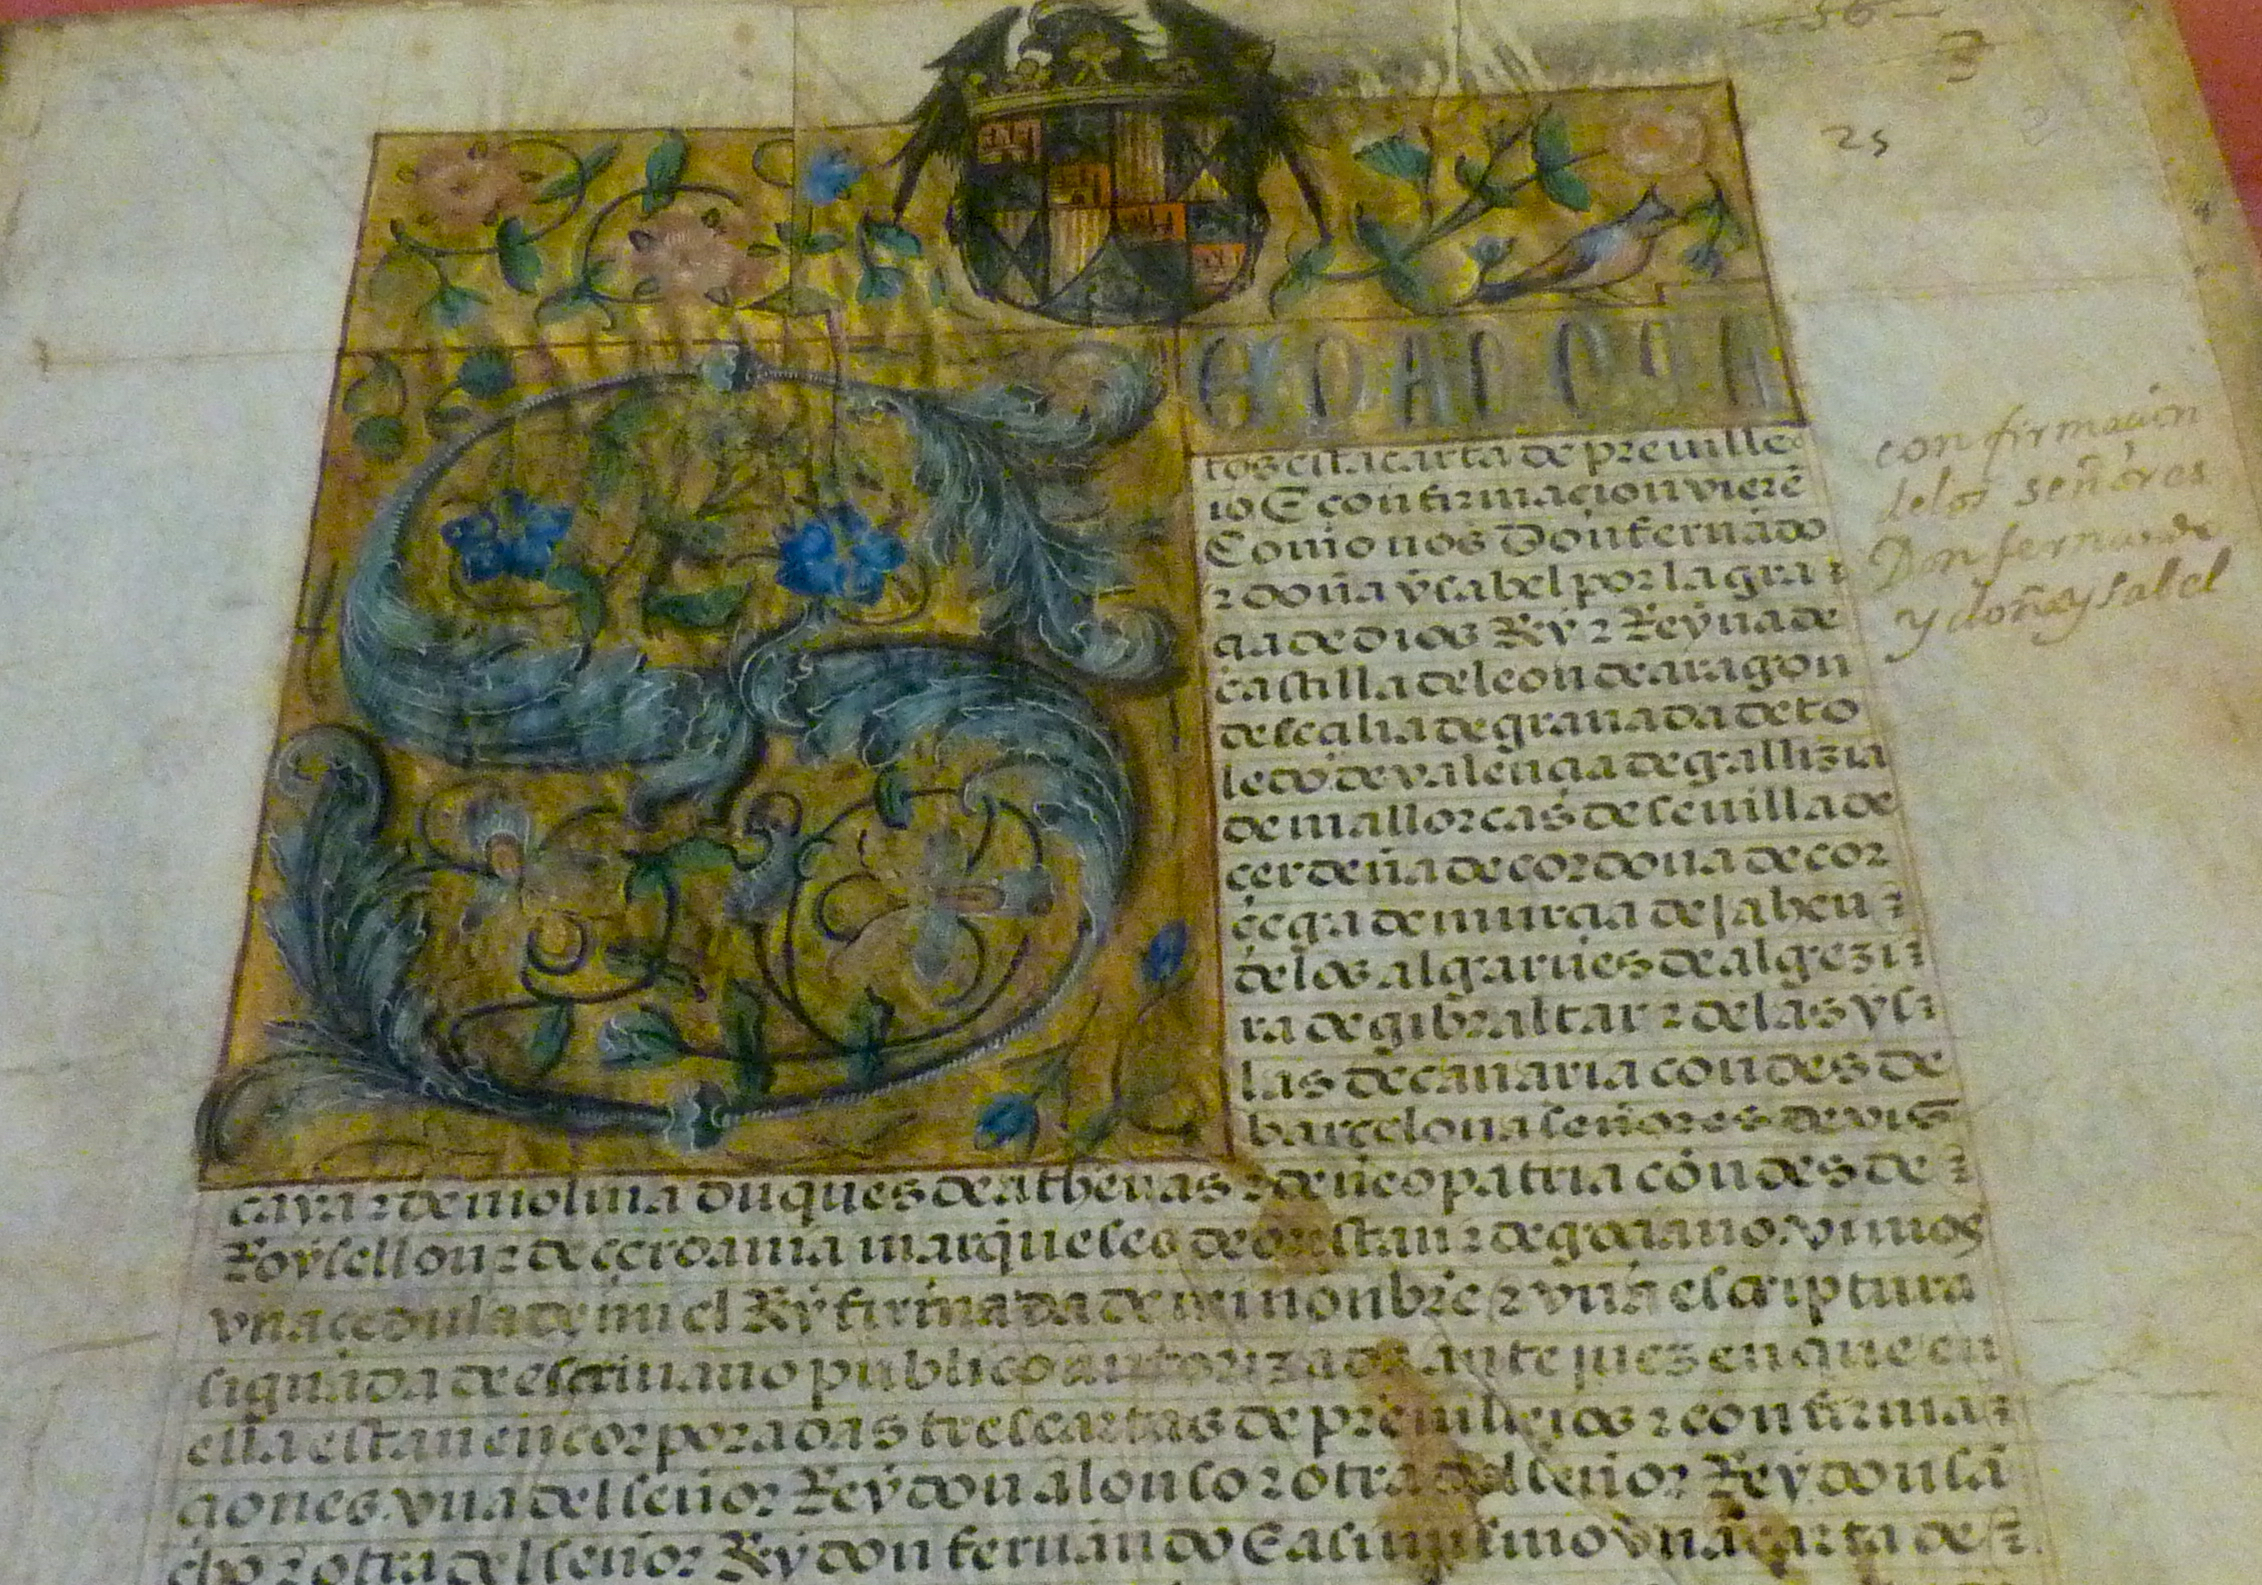 56
3
25
S
tos esta carta de preuille
io E confirmacion vierẽ
Como nos Don fernãdo
ꝛ doña ysabel por la gra
çia de dios Rey ꝛ Reyna de
castilla de leon de aragon
de seçilia de granada de to
ledo de valençia de gallizia
de mallorcas de seuilla de
çerdeña de cordoua de cor
çega de murçia de jahen
de los algarues de algezi
ra de gibraltar ꝛ de las ys
las de canaria condes de
barçelona señores de viz
caya ꝛ de molina duques de athenas ꝛ de neopatria condes de
Roysellon ꝛ de çerdania marqueses de oristan ꝛ de goçiano. vimos
vna çedula de mi el Rey firmada de mi nonbre ꝛ vna escriptura
signada de escriuano publico autorizada ante juez en que en
ella estan encorporadas tres cartas de preuillejos ꝛ confirma
çiones. vna del señor Rey don alonso ꝛ otra del señor Rey don sã
cho ꝛ otra del señor Rey don fernando E asimismo vna carta de
confirmacion
delos señores
Don fernando
y doña ysabel